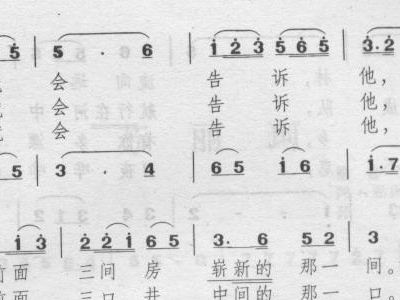 5 | 5 · 6 | i 2 3 5 6 5 | 3 · 2
会 告 诉 他,
会 告 诉 他,
会 告 诉 他,
5 | 3 · 4 | 6 5 i 6 | i · 7
i 3 | 2 2 i 6 5 | 3 · 6 5 2 | 3
前 面 三 间 房 崭 新 的 那 一 间。
三 口 井 中 间 的 那 一 口。